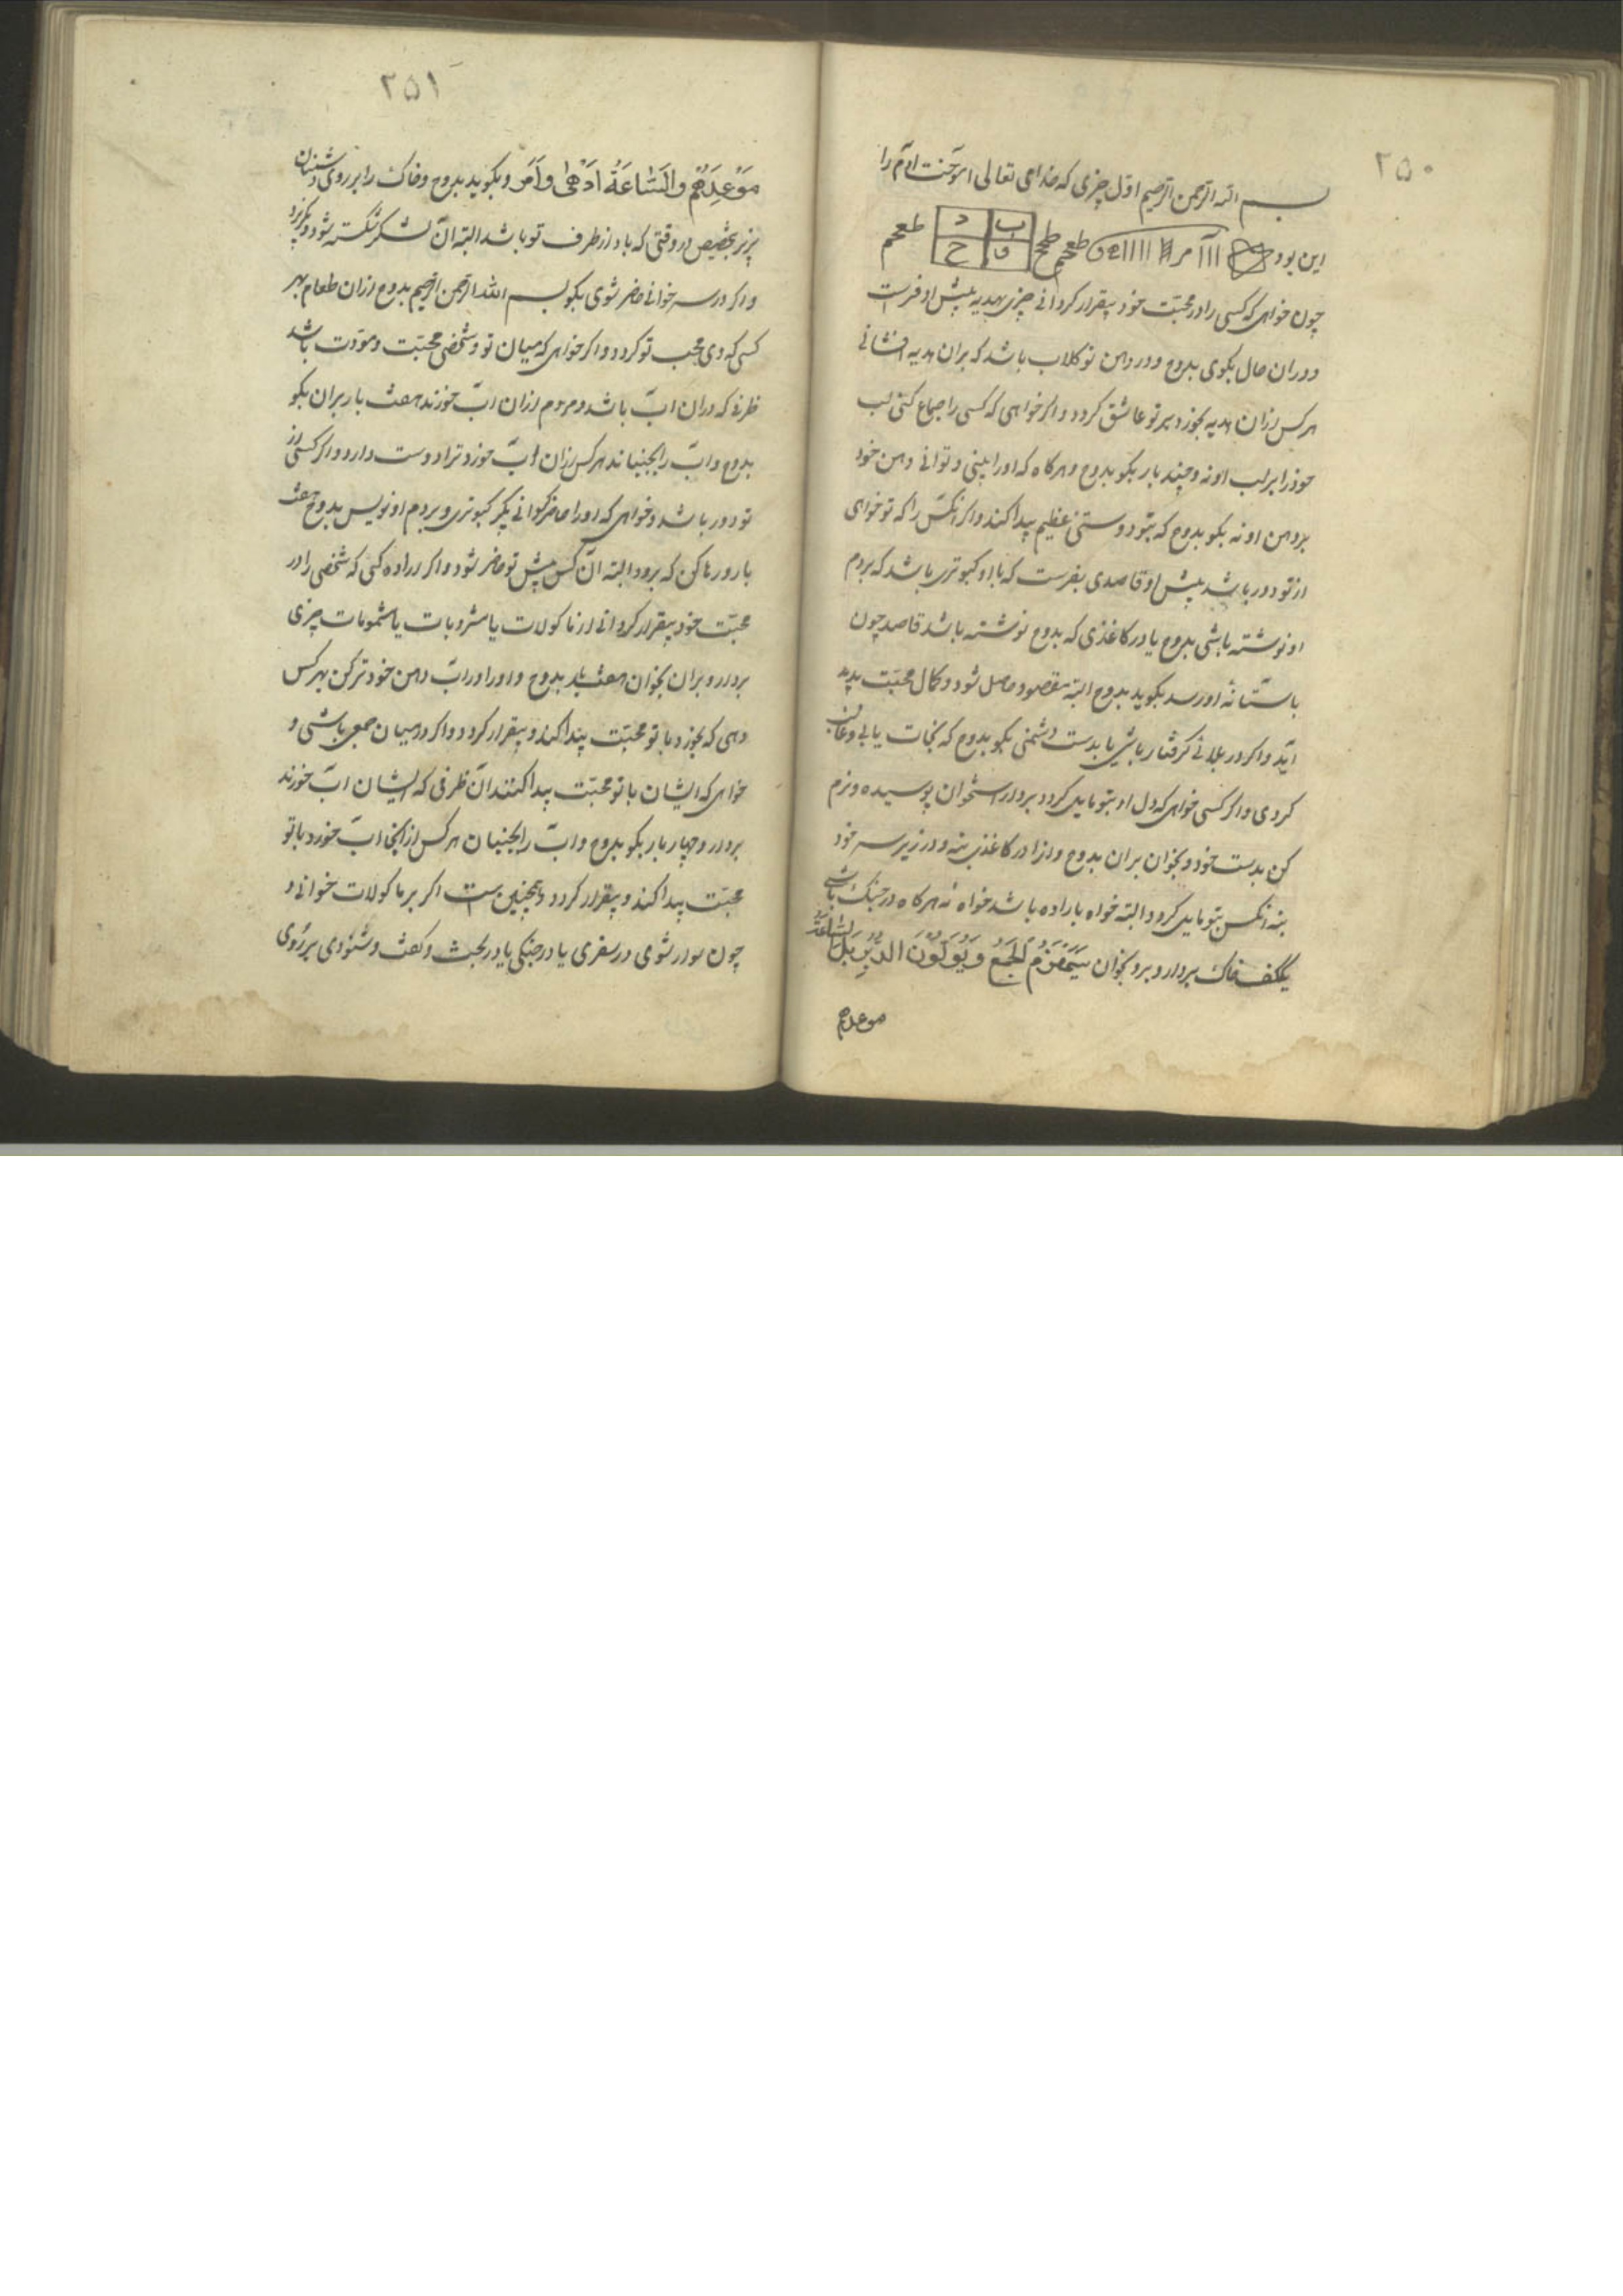 ۲۵۰
بسم الله الرحمن الرحیم اول چیزی که خدای تعالی اموخت ادم را
این بود ۱۱۱ طعجم ب د و ح طعجم
چون خواهی که کسی را در محبّت خود بیقرار کردانی چیزی بهدیه پیش او فرست
و دران حال بکوی بدوح و در دهن تو کلاب باشد که بران هدیه افشانی
هر کس ازان هدیه بخورد بر تو عاشق کردد و اکر خواهی که کسی را جماع کنی لب
خود را بر لب او نه و چند بار بکو بدوح و هرکاه که او را بینی و توانی دهن خود
بر دهن او نه بکو بدوح که بتو دوستی عظیم پیدا کند و اکر انکس را که تو خواهی
از تو دور باشد پیش او قاصدی بفرست که با او کبوتری باشد که بر دم
او نوشته باشی بدوح یا در کاغذی که بدوح نوشته باشد قاصد چون
باستانهٔ او رسد بکوید بدوح البته مقصود حاصل شود و کمال محبّت پدید
اید و اکر در بلائی کرفتار باشی یا بدست دشمنی بکو بدوح که نجات یابی و غالب
کردی و اکر کسی خواهی که دل او بتو مایل کردد بردار استخوان پوسیده و نرم
کن بدست خود و بخوان بران بدوح و انرا در کاغذی بنه و در زیر سر خود
بنه انکس بتو مایل کردد البته خواه با راده باشد خواه نه هرکاه در جنک باشی
یککف خاک بردار و برو بخوان سَیُهْزَمُ الجَمْعُ وَیُوَلُّونَ الدُّبُرَ بَلِ السَّاعَةُ
موعدهم
۲۵۱
مَوْعِدُهُمْ وَالسَّاعَةُ اَدْهٰی وَاَمَرّ و بکوید بدوح و خاک را بر روی دشمنان
بریز بتخصیص در وقتی که باد از طرف تو باشد البته ان لشکر شکسته شود و بکریزد
و اکر در سر خوانی حاضر شوی بکو بسم الله الرحمن الرحیم بدوح ازان طعام بهر
کسی که دهی محب تو کردد و اکر خواهی که میان تو و شخصی محبّت و مودّت باشد
ظرفی که دران اب باشد و مردم ازان اب خورند هفت بار بران بکو
بدوح و اب را بجنباند هر کس ازان اب خورد ترا دوست دارد و اکر کسی از
تو دور باشد و خواهی که او را حاضر کردانی بکیر کبوتری و بر دم او نویس بدوح هفت
بار و رها کن که برود البته ان کس پیش تو حاضر شود و اکر اراده کنی که شخصی را در
محبّت خود بیقرار کردانی از ماکولات یا مشروبات یا مشمومات چیزی
بردار و بران بخوان هفت بار بدوح و او را در اب دهن خود تر کن بهر کس
دهی که بخورد با تو محبّت پیدا کند و بیقرار کردد و اکر در میان جمعی باشی و
خواهی که ایشان با تو محبّت پیدا کنند ان ظرفی که ایشان اب خورند
بردار و چهار بار بکو بدوح و اب را بجنبان هر کس از انجا اب خورد با تو
محبّت پیدا کند و بیقرار کردد و همچنین است اکر بر ماکولات خوانی و
چون سوار شوی در سفری یا در جنکی یا در بحث و کفت و شنودی بر روی